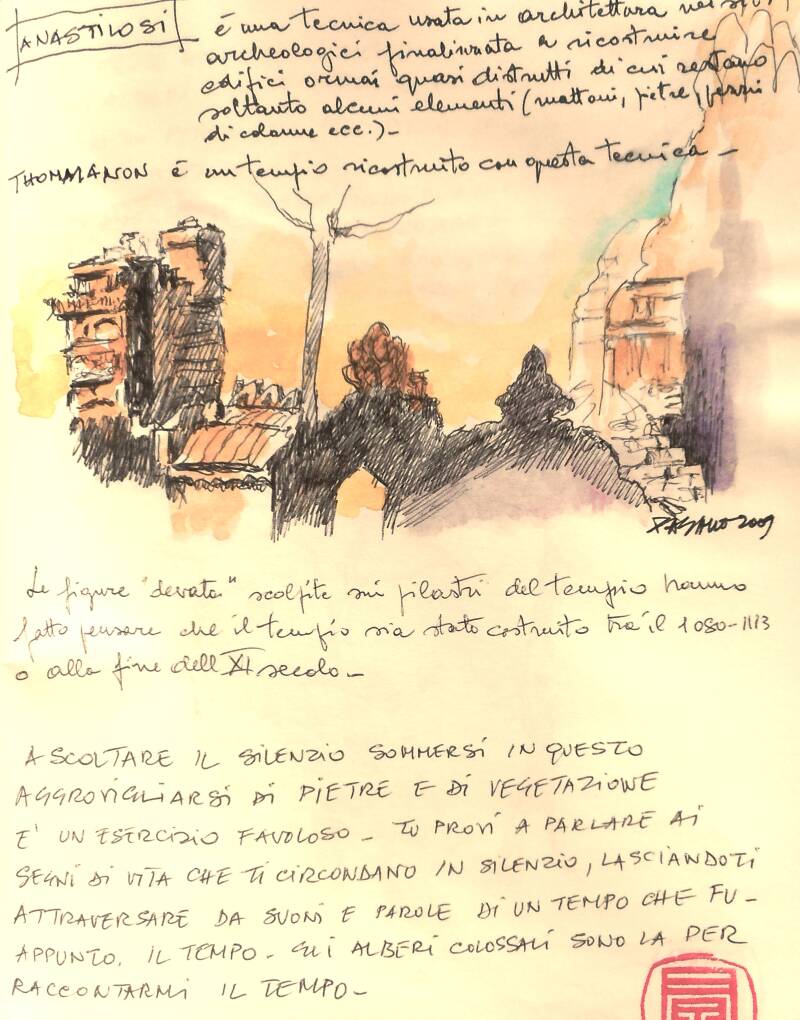 ANASTILOSI é una tecnica usata in architettura nei siti
archeologici finalizzata a ricostruire
edifici ormai quasi distrutti di cui restano
soltanto alcuni elementi (mattoni, pietre, pezzi
di colonne ecc.)-
THOMMANON é un tempio ricostruito con questa tecnica-
PAGANO 2009
Le figure "devata" scolpite sui pilastri del tempio hanno
fatto pensare che il tempio sia stato costruito tra il 1080-1113
o alla fine dell'XI secolo-
ASCOLTARE IL SILENZIO SOMMERSI IN QUESTO
AGGROVIGLIARSI DI PIETRE E DI VEGETAZIONE
E' UN ESERCIZIO FAVOLOSO- TU PROVI A PARLARE AI
SEGNI DI VITA CHE TI CIRCONDANO IN SILENZIO, LASCIANDOTI
ATTRAVERSARE DA SUONI E PAROLE DI UN TEMPO CHE FU-
APPUNTO. IL TEMPO- GLI ALBERI COLOSSALI SONO LA PER
RACCONTARMI IL TEMPO-